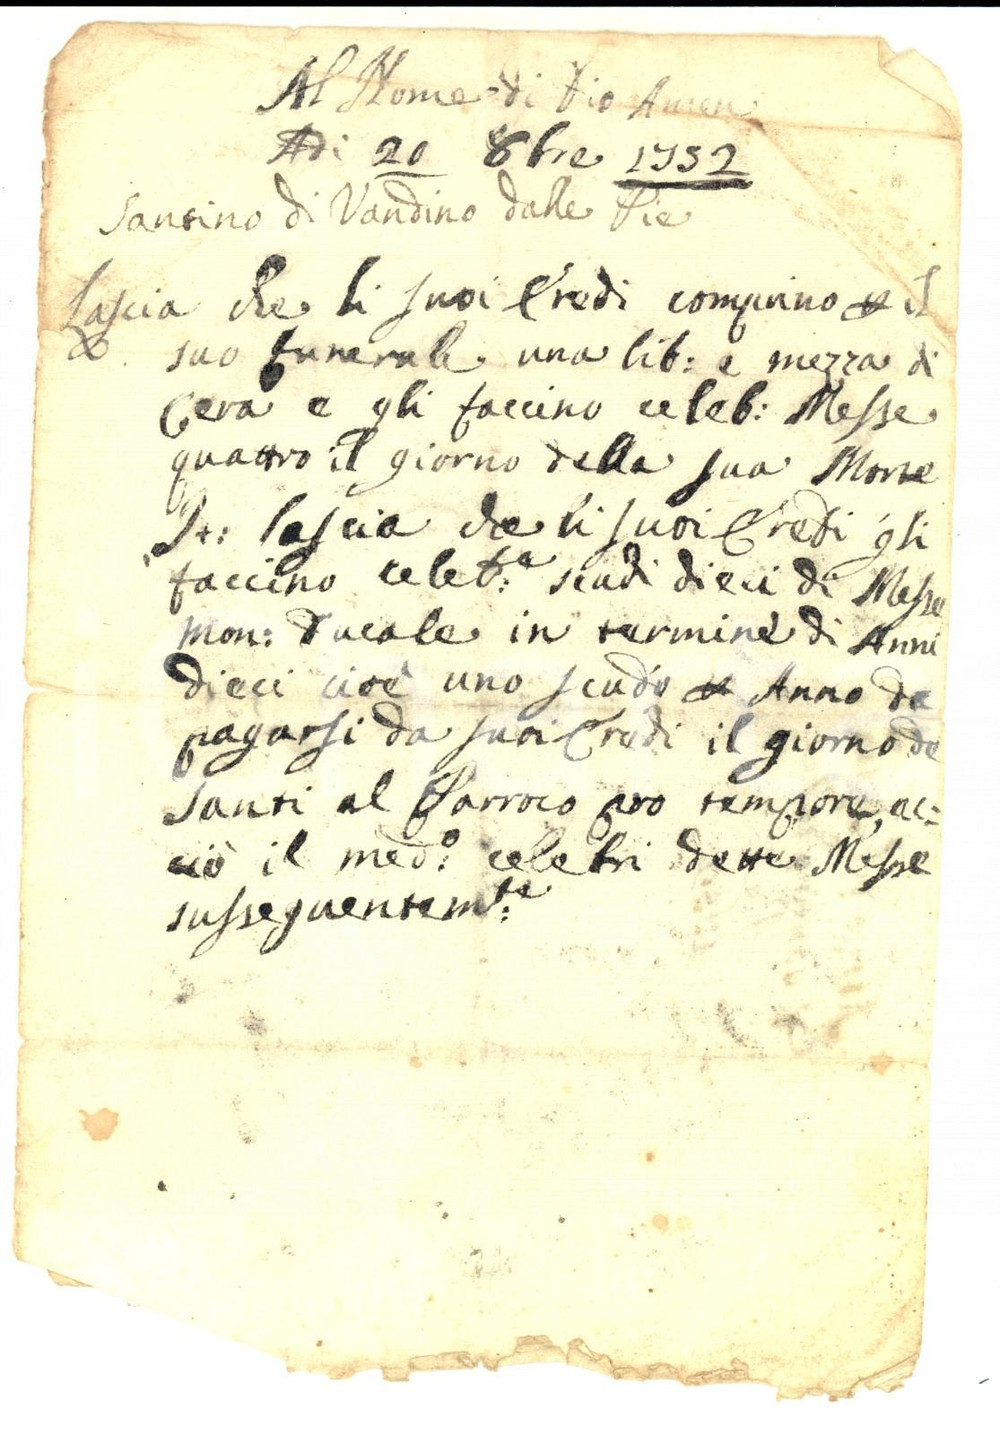 Al Nome di Dio Amen
Adi 20 8bre 1752
Santino di Vandino dalle Pie
Lascia che li suoi Eredi comprino il
suo funerale una lib: e mezza di
Cera e gli faccino celeb: Messe
quattro il giorno della sua Morte
It: lascia che li suoi Eredi gli
faccino celeb:re scudi dieci di Messe
mon: Ducale in termine di Anni
dieci cioè uno scudo Anno da
pagarsi da suoi Eredi il giorno de
Santi al Parroco pro tempore, ac:
ciò il med:o celebri dette Messe
susseguentem:te